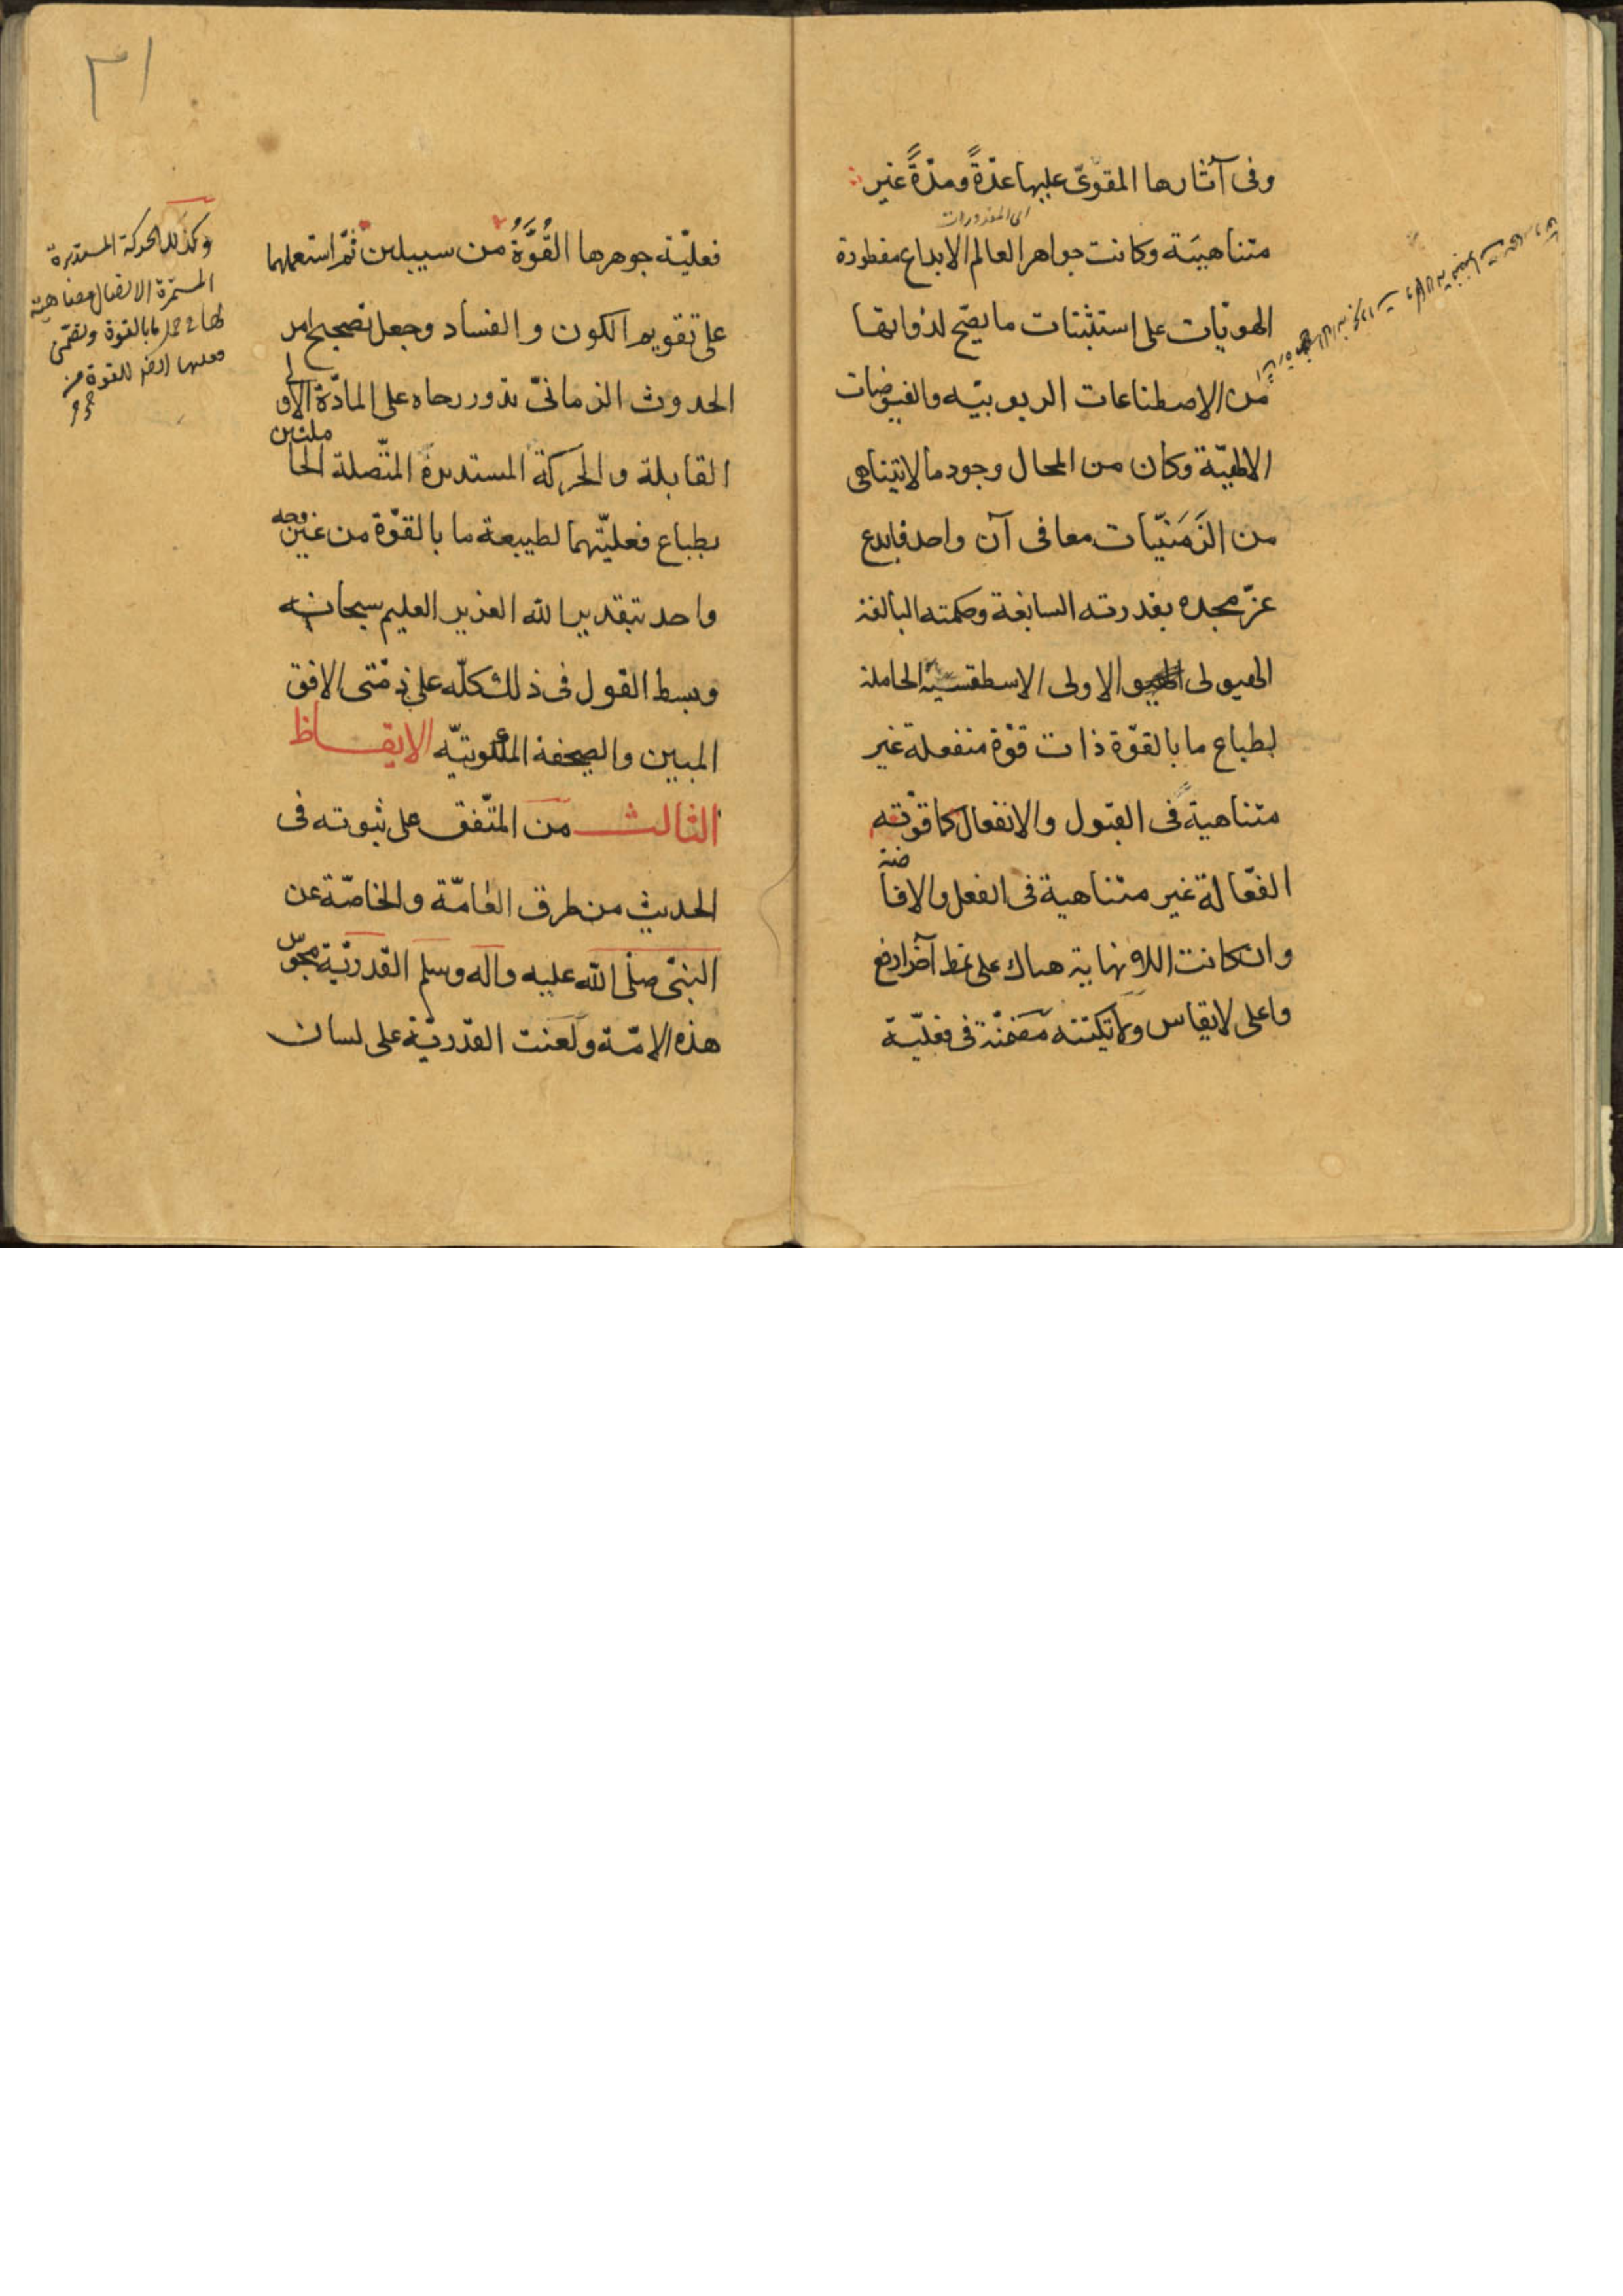 وفى آثارها المقوّى عليها عدّةً ومدّةً غير
اى المقدورات
متناهيَة وكانت جواهر العالم الابداع مفطورة
الهويّات على استثبات ما يصّح لذواتها
من الاصطناعات الربوبيّه والفيوضات
الالهيّة وكان من المحال وجود ما لا يتناهى
من الزَمَنيّات معا فى آن واحد فابدع
عزّ مجده بقدرته السابغة وحكمته البالغة
الهيولى الاولى الاسطقسيّة الحاملة
لطباع ما بالقوّة ذات قوّة منفعلة غير
متناهية فى القبول والانفعال كما قوّته
الفعّالة غير متناهية فى الفعل والافاضة
وان كانت اللانهاية هناك على نمط آخر ارفع
واعلى لا يقاس ولا يكتنه مضمّنة فى فعليّة
٣١
فعليّة جوهرها القُوَّةُ من سبيلين ثمّ استعملها
على تقويم الكون والفساد وجعل تصحيح امر
الحدوث الزمانىّ تدور رحاه على المادّة الاولى
القابلة والحركة المستديرة المتّصلة الحاملتين
بطباع فعليّتهما لطبيعة ما بالقوّة من غير وجه
واحد بتقدير الله العزيز العليم سبحانه
وبسط القول فى ذلك كلّه على ذمّتى الافق
المبين والصحفة الملكوتيّه الايقاظ
الثالث من المتّفق على ثبوته فى
الحديث من طرق العامّة والخاصّة عن
النبىّ صلّى الله عليه واله وسلم القدريّة مجوس
هذه الامّة ولعنت القدريّة على لسان
وكذلك الحركة المستديرة
المستمرّة الاتصال
لها فى حمل ما بالقوة